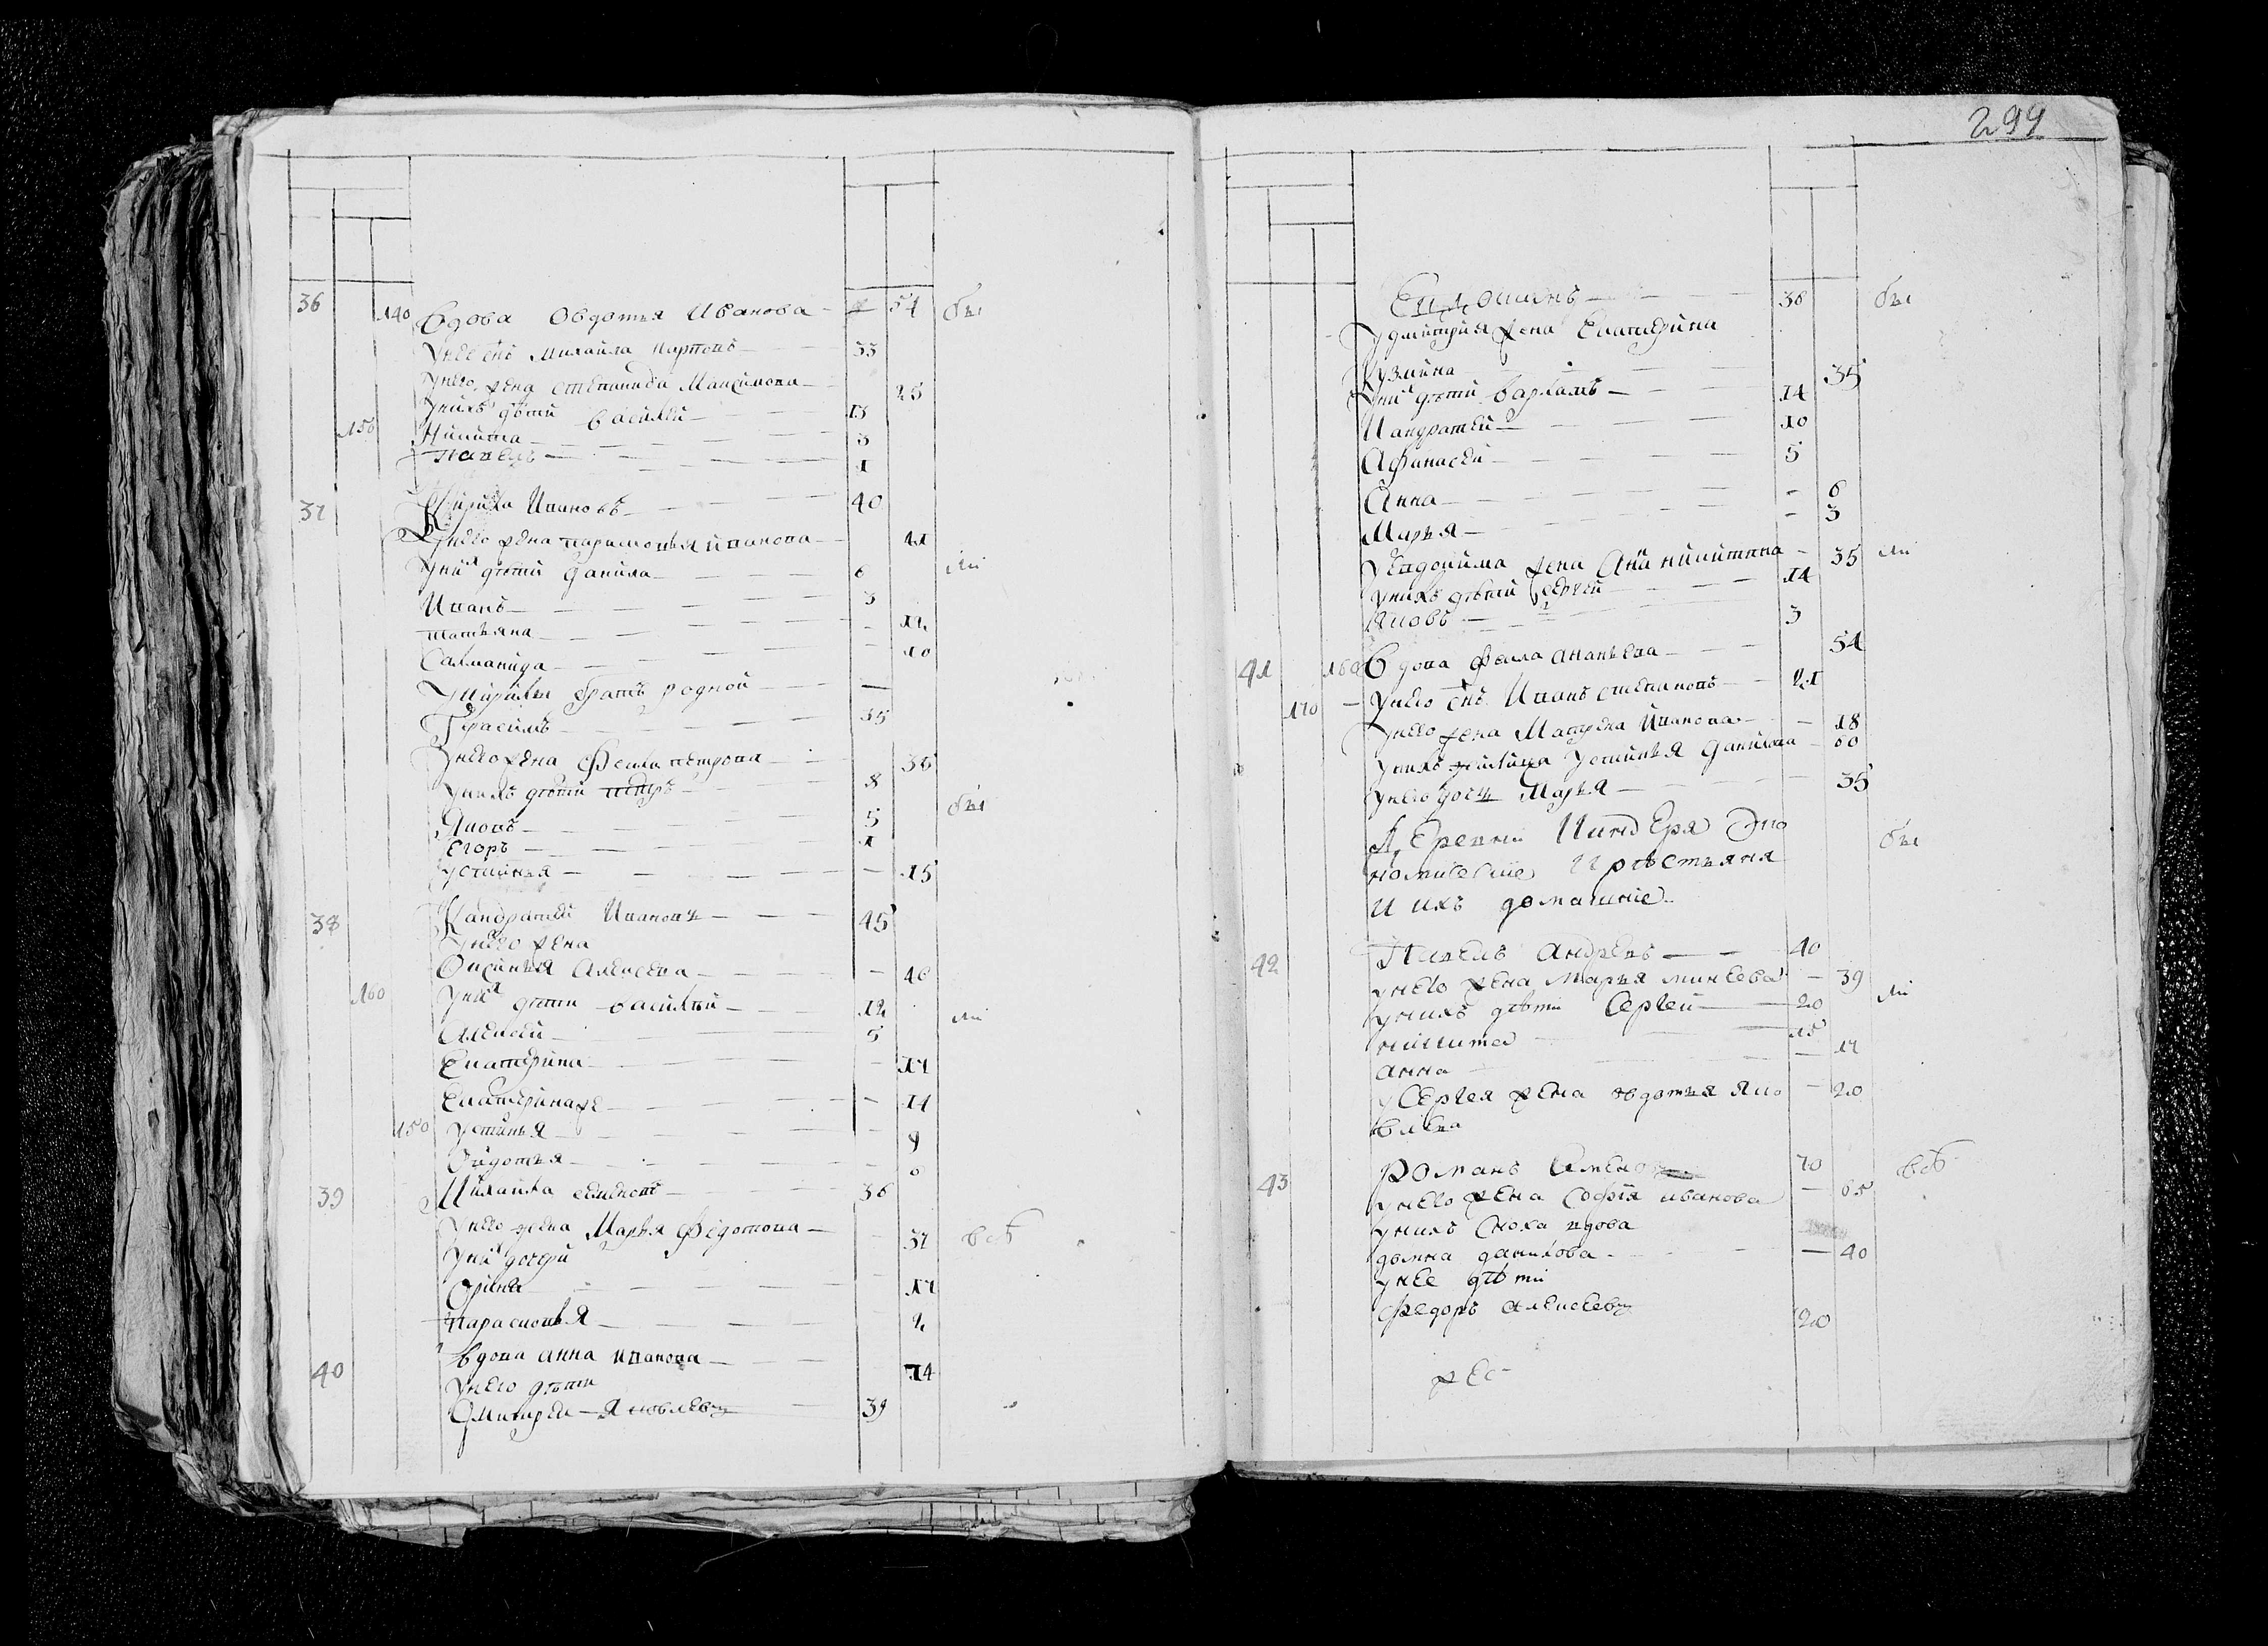 36 140 Вдова Овдотья Иванова — 54 бы
У нее снъ Михаила Карповъ — 33
У него жена Степанида Максимова — 25
У нихъ дѣти Василей — 13
150 Никита — 3
Павелъ — 1
37 Кирила Ивановъ — 40
У него жена Парасковья Иванова — 41
У них дѣти Данила — 6 ли
Иванъ — 3
Татьяна — 12
Саламанида — 10
У Кирилы братъ родной —
Герасимъ — 35
У него жена Фекла Петрова — 36
У нихъ дѣти Петръ — 8
Яковъ — 5 бы
Егоръ — 1
Устинья — 15
38 Кандратей Ивановъ — 45
У него жена
Оксинья Алексева — 46
160 У них дѣти Василей — 12
Алексей — 5 ли
Екатерина — 17
Екатерина же — 14
150 Устинья — 9
Овдотья — 6
39 Михайла — 36
У него жена Марья Федотова — 37 всѣ
У них дочери
Орина — 17
Парасковья — 2
40 Вдова Анна Иванова — 74
У него дѣти
Дмитрей Яковлевъ — 39
299
Евдокимъ — 38 бы
У Дмитрия жена Екатерина
Кузмина — 35
У них дѣти Варламъ — 14
Кандратей — 10
Афанасей — 5
Анна — 6
Марья — 3
У Евдокима жена Никитина — 35 ли
У нихъ дѣти Сергей — 14
Яковъ — 3
41 160 Вдова Фекла Ананьева — 54
170 У него снъ Иванъ Степановъ — 21
У него жена Матрена Иванова — 18
У нихъ Устинья Данилова — 60
У него дочь Марья — 35
Деревни Киндеря Эко
номические крѣстьяня бы
и ихъ доматние
42 Павелъ Андревъ — 40
У него жена Марья Минеева — 39
У нихъ дѣти Сергей — 20 ли
Никита — 15
Анна — 17
У Сергея жена Овдотья Яко — 20
влева
43 Романъ Семено — 70 всѣ
У него жена Софiя Иванова — 65
У нихъ сноха вдова
Домна Данилова — 40
У нее дѣти
Федоръ Алексеевъ 20
же